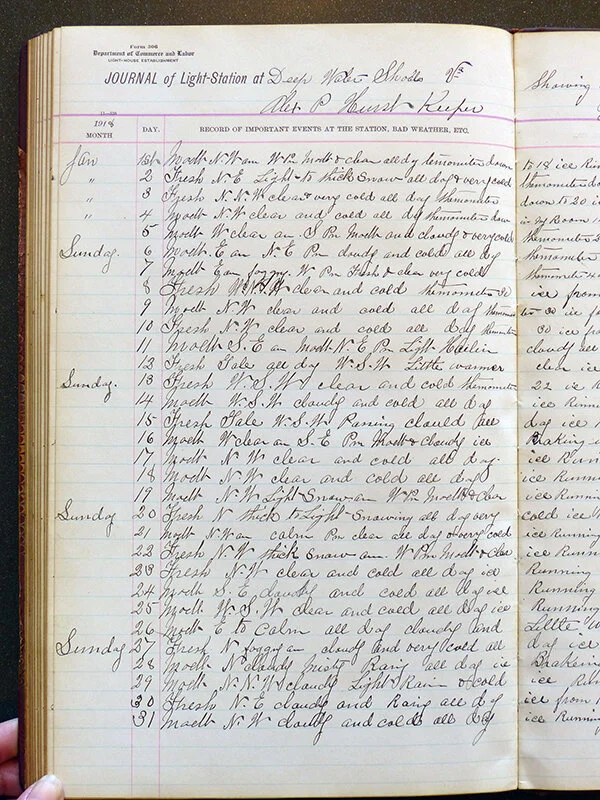 Form 306
Department of Commerce and Labor
LIGHT-HOUSE ESTABLISHMENT
JOURNAL of Light-Station at Deep Water Shoals Va
Alex P Hurst Keeper
Showing
1918
MONTH DAY. RECORD OF IMPORTANT EVENTS AT THE STATION, BAD WEATHER, ETC.
Jan 1st Modt N.W am W Pm Modt & clear all day temometer down to 18 ice Run
" 2 Fresh N.E Light to thick Snow all day & very cold thermometer do
" 3 Fresh N.N.W clear & very cold all day thermometer down to 20 in
" 4 Modt N.W clear and cold all day thermometer down in my Room
5 Modt W clear am S Pm Modt and cloudy & very cold thermometer
Sunday. 6 Modt E am N.E Pm cloudy and cold all day thermometer
7 Modt E am foggy. W Pm Fresh & clear very cold thermometer
8 Fresh W.N.W clear and cold themometer 30 ice from
9 Modt N.W clear and cold all day themome to 30 ice
10 Fresh N.W clear and cold all day 30 ice
11 Modt S.E am Modt N.E Pm Light Hailin cloudy all
12 Fresh Gale all day W.S.W Little warmer clear ice
Sunday. 13 Fresh W.S.W clear and cold themometer 22 ice R
14 Modt W.S.W cloudy and cold all day ice Runn
15 Fresh Gale W.S.W Passing clould all day ice
16 Modt W clear am S.E Pm Modt & cloudy ice Braking
17 Modt N.W clear and cold all day. ice Run
18 Modt N.W clear and cold all day ice Runn
19 Modt N.W Light Snow am W Pm Modt & clear ice Runnin
Sunday 20 Fresh N thick to Light Snowing all day very cold ice
21 Modt N.W am calm Pm clear all day & very cold ice Runn
22 Fresh N.W thick Snow am. W Pm Modt & clear ice Runn
23 Fresh N.W clear and cold all day ice Running
24 Modt S.E cloudy and cold all day ice Running
25 Modt W.S.W clear and cold all day ice Running
26 Modt E to Calm all day cloudy and Little W
Sunday 27 Fresh N foggy am cloudy and very cold all day ice
28 Modt N cloudy Rain all day ice Braken
29 Modt N.N.W cloudy Light Rain & cold ice Run
30 Fresh N.E cloudy and Rain all day ice from
31 Modt N.W cloudy and cold all day ice Runnin